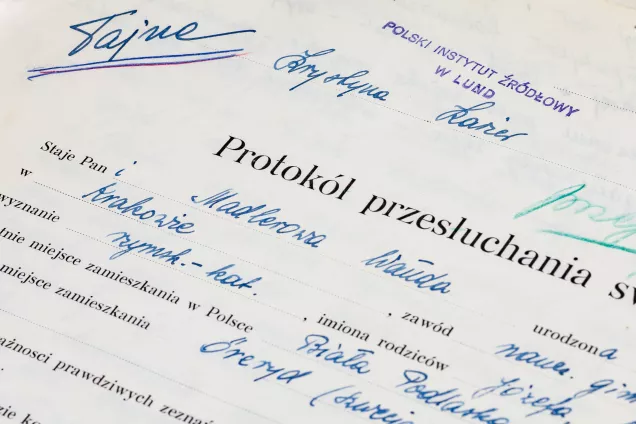 Tajne
POLSKI INSTYTUT ŹRÓDŁOWY
W LUND
Krystyna Karier
Protokól przesłuchania św
Staje Pani Madlerowa Wanda urodzona
w Krakowie , zawód naucz. gim
wyznanie rzymsk.-kat. , imiona rodziców Józefa,
tnie miejsce zamieszkania w Polsce Biała Podlaska
miejsce zamieszkania Öreryd
ażności prawdziwych zeznań